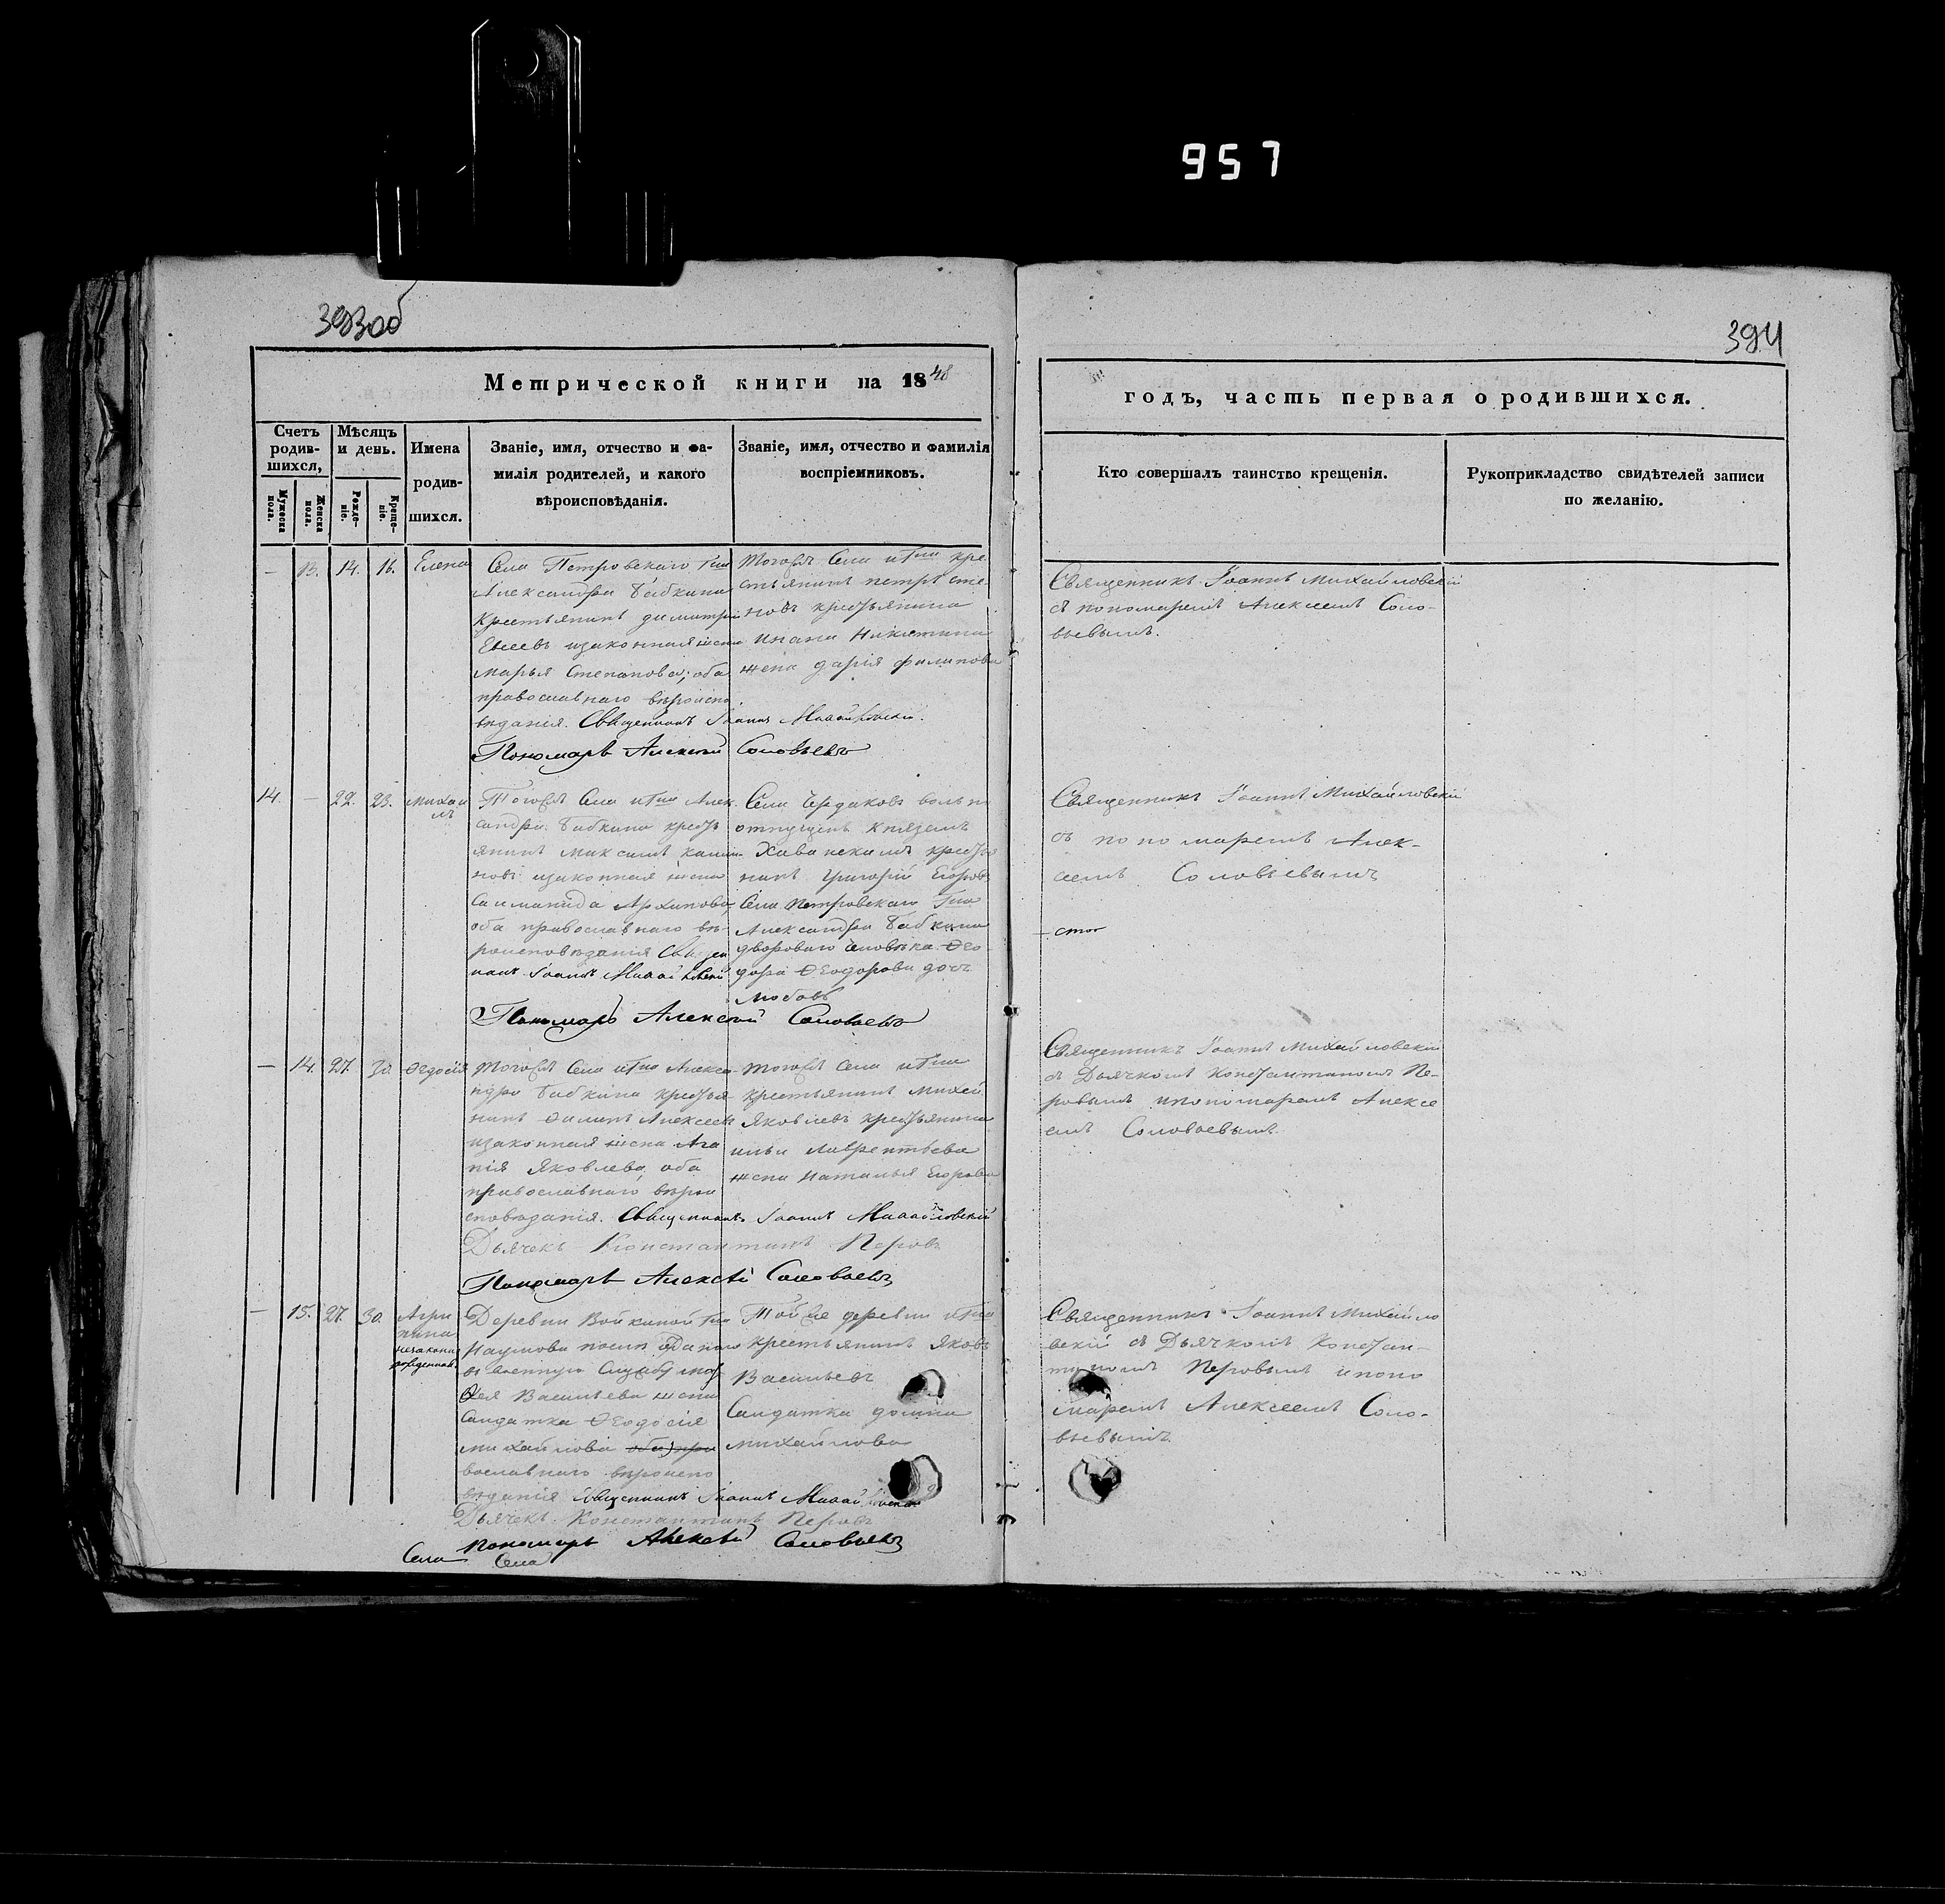 957
393об
394
Метрической книги на 1848
годъ, часть первая о родившихся.
Счетъ родившихся,
Мужеска пола.
Женска пола.
Мѣсяцъ и день.
Рожденіе.
Крещеніе.
Имена родившихся.
Званіе, имя, отчество и фамилія родителей, и какого вѣроисповѣданія.
Званіе, имя, отчество и фамилія воспріемниковъ.
Кто совершалъ таинство крещенія.
Рукоприкладство свидѣтелей записи по желанію.
— 13. 14. 16. Елена
Села Петровскаго Гна
Александра Бабкина
крестьянинъ димитрій
Евсеевъ изаконная жена
марья Степанова, оба
православнаго вѣроиспо
вѣданія. Священникъ Іоаннъ Михайловскій.
Пономарь Алексей Соловьевъ
Тогожъ Села иГна кре
стьянинъ петръ сте
новъ крестьянина
Ивана Никитина
жена дарія филипова
Священникъ Іоаннъ Михайловскій
съ пономаремъ Алексеемъ Соло-
вьевымъ.
14. — 22. 23. Михаи
лъ
Тогожъ Села иГна Алек
сандра Бабкина кресть
янинъ Максимъ
новъ изаконная жена
Архипова,
оба православнаго вѣ-
роисповѣданія Священ
никъ Іоаннъ Михайловскій
Пономарь Алексей Соловьевъ
Села вольно
отпущенъ Княземъ
кресть
нинъ Григорій Егоровъ
Села Петровскаго Гна
Александра Бабкина
двороваго человѣка Ѳео
дора Ѳеодорова дочь
Любовь
Священникъ Іоаннъ Михайловскій
съ пономаремъ Алек-
сеемъ Соловьевымъ
— 14. 27. 30. Ѳедосія
Тогожъ Села иГна Алекса-
ндра Бабкина крестья
нинъ Филипъ Алексеевъ
изаконная жена Ага
пія Яковлева, оба
православнаго вѣрои
сповѣданія. Священникъ Іоаннъ Михайловскій
Дьячекъ Константинъ Перовъ
Пономарь Алексей Соловьевъ
Тогожъ Села иГна
крестьянинъ Михей
Яковлевъ крестьянина
ильи Лаврентьева
жена Наталья Егорова
Священникъ Іоаннъ Михайловскій
съ Дьячкомъ Константиномъ Пе-
ровымъ ипономаремъ Алексе
емъ Соловьевымъ.
— 15. 27. 30. Агри
пина
незаконно
рожденная
Деревни Войкиной Гна
Наумова
въ военную Службу
Васильева жена
Салдатка Ѳеодосія
михайлова
вославнаго вѣроиспо
вѣданія Священникъ Іоаннъ Михайловскій
Дьячекъ Константинъ Перовъ
Пономарь Алексей Соловьевъ
Тойже деревни иГна
крестьянинъ Яковъ
Васильевъ
Салдатка домна
михайлова
Священникъ Іоаннъ Михайло
вскій съ Дьячкомъ Констан-
тиномъ Перовымъ ипоно
маремъ Алексеемъ Соло-
вьевымъ.
Села Села